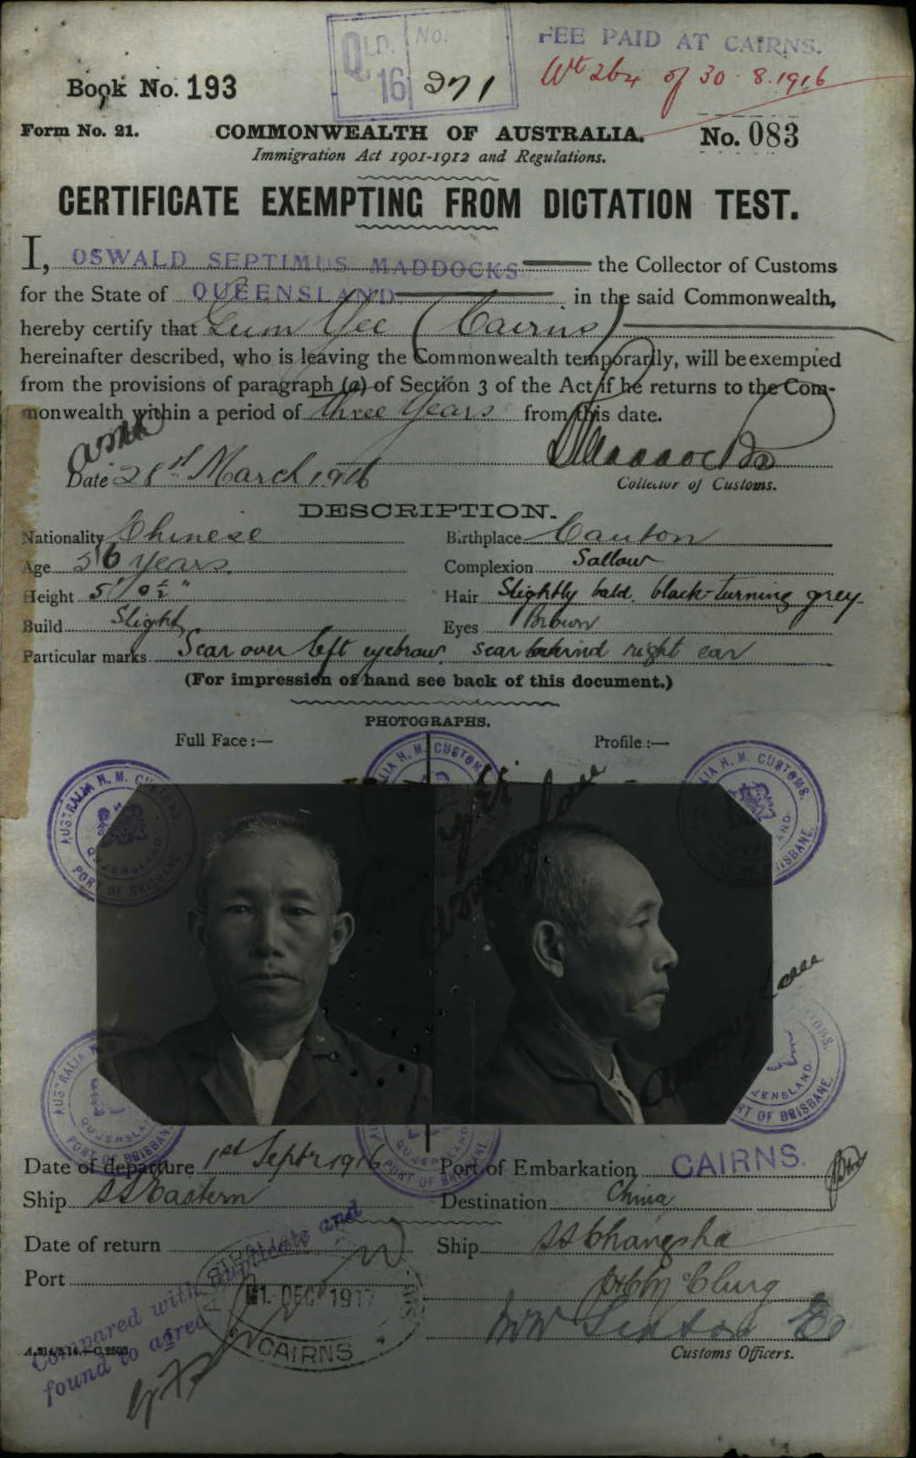 QLD. No.
16 271
FEE PAID AT CAIRNS.
Wt 264 of 30.8.1916
Book No. 193
Form No. 21. COMMONWEALTH OF AUSTRALIA. No. 083
Immigration Act 1901-1912 and Regulations.
CERTIFICATE EXEMPTING FROM DICTATION TEST.
I, OSWALD SEPTIMUS MADDOCKS the Collector of Customs
for the State of QUEENSLAND in the said Commonwealth,
hereby certify that Gum Yee (Cairns)
hereinafter described, who is leaving the Commonwealth temporarily, will be exempted
from the provisions of paragraph (a) of Section 3 of the Act if he returns to the Com-
monwealth within a period of three years from this date.
Date 28 March 1916
Collector of Customs.
DESCRIPTION.
Nationality Chinese Birthplace Canton
Age 56 years. Complexion Sallow
Height 5' 0½" Hair Slightly bald, black-turning grey
Build Slight Eyes Brown
Particular marks Scar over left eyebrow, scar behind right ear
(For impression of hand see back of this document.)
PHOTOGRAPHS.
Full Face:— Profile:—
AUSTRALIA H. M. CUSTOMS.
QUEENSLAND.
PORT OF BRISBANE
Date of departure 1st Septr 1916 Port of Embarkation CAIRNS.
Ship SS Eastern Destination China
Date of return Ship SS Changsha
Port
1. DEC 1917
CAIRNS
Compared with duplicate and
found to agree
Customs Officers.